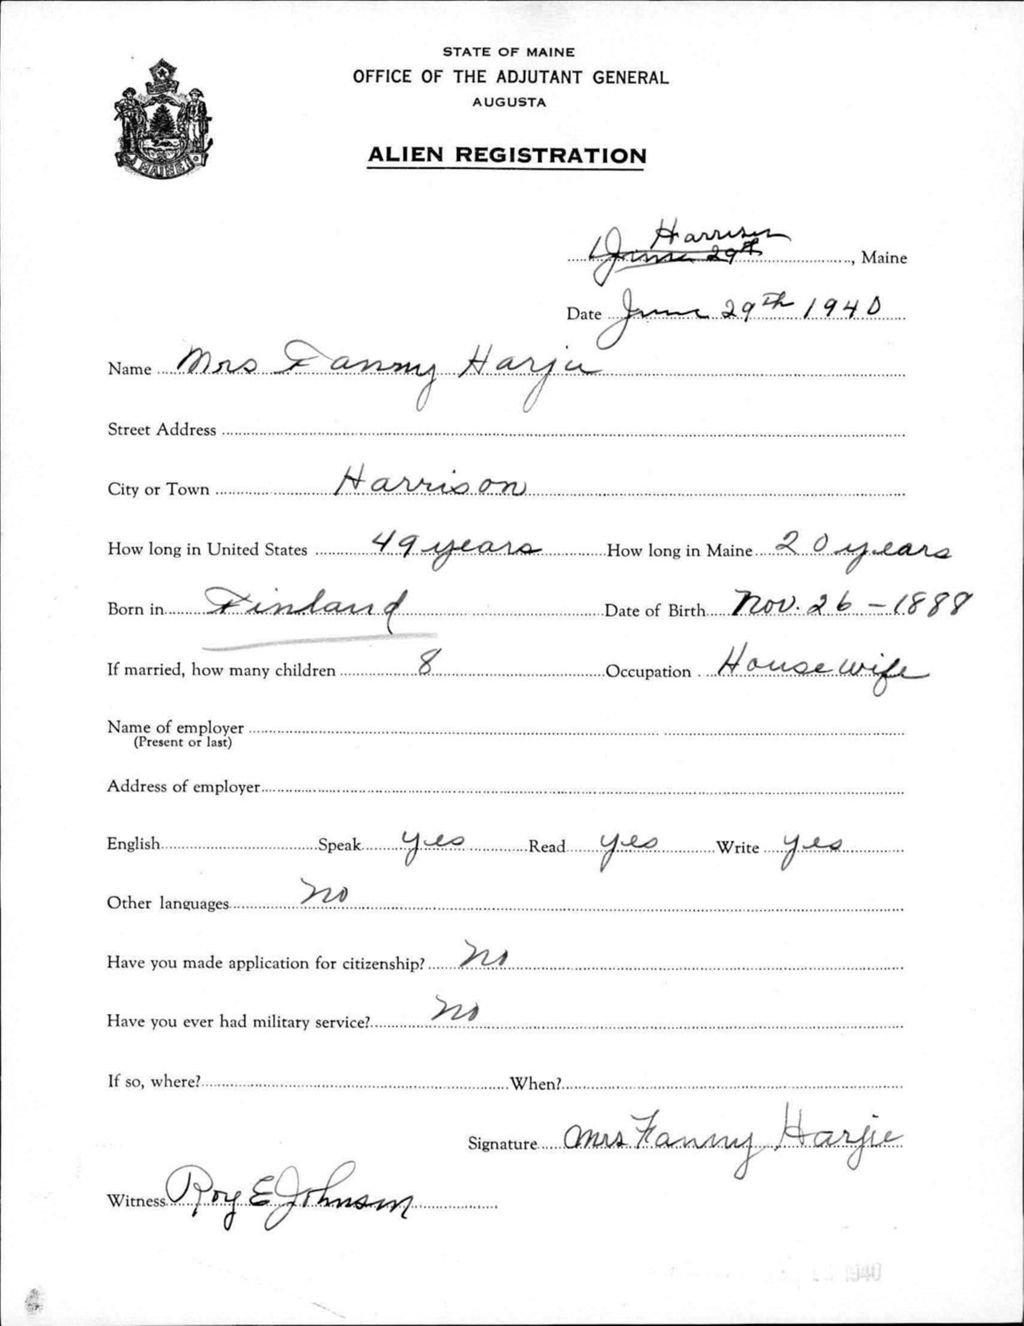 STATE OF MAINE
OFFICE OF THE ADJUTANT GENERAL
AUGUSTA
MAINE
ALIEN REGISTRATION
Harrison
June 29th, Maine
Date June 29th 1940
Name Mrs Fanny Harju
Street Address
City or Town Harrison
How long in United States 49 years How long in Maine 20 years
Born in Finland Date of Birth Nov. 26 - 1888
If married, how many children 8 Occupation Housewife
Name of employer
(Present or last)
Address of employer
English Speak yes Read yes Write yes
Other languages no
Have you made application for citizenship? no
Have you ever had military service? no
If so, where? When?
Signature Mrs Fanny Harju
Witness Roy E Johnson
1940